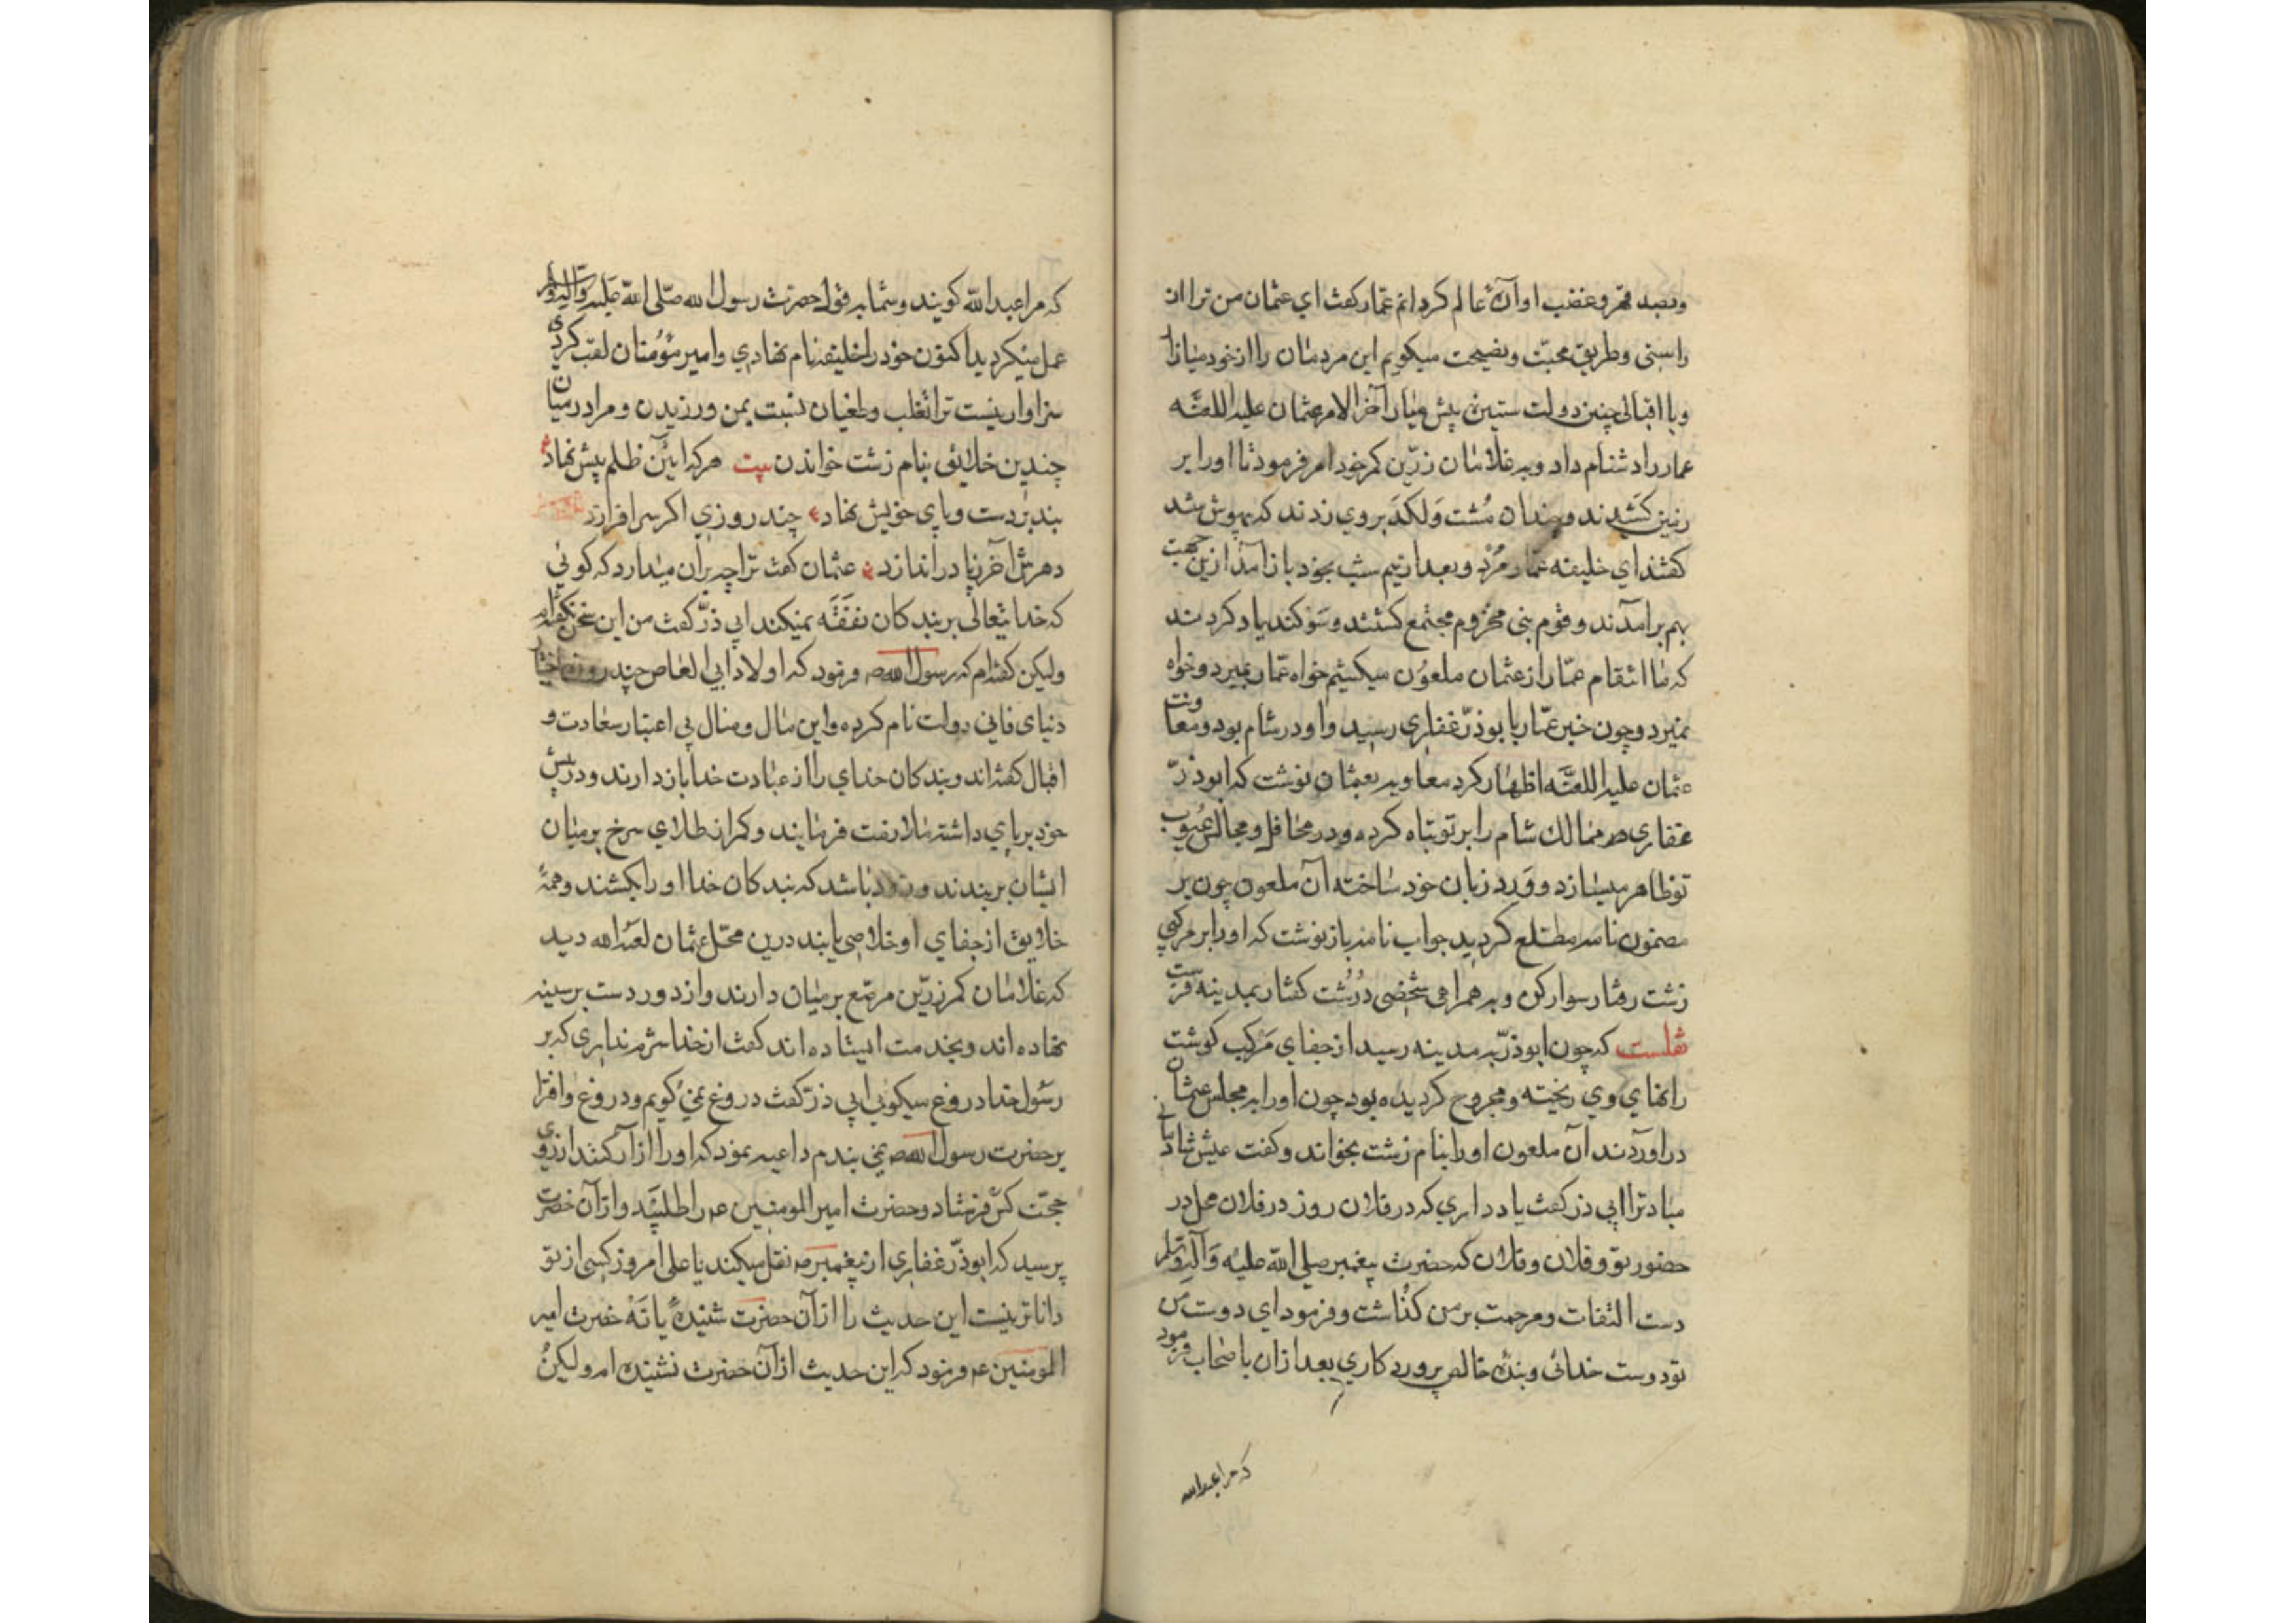 وبصد قهر و غضب اوارهٔ عالم کرد انم عمّار کفت ای عثمان من ترا از
راستی و طریق محبّت و نصیحت میکویم این مردمان را از خود میازار
و با اقبالی چنین دولت ستیزه پیش میار آخر الامر عثمان علیه اللعنَه
عمار را دشنام داد و به غلامان زرّین کمر خود امر فرمود تا او را بر
زمین کَشیدند و چندان مُشت وَلکدَ بروی زدند که بیهوش شد
کفتند ای خلیفه عمّار مُرد و بعد از نیم شب بخود باز آمد ازین جهت
بهم برامدند و قوم بنی مخزوم مجتمع کشتند و سَوکند یاد کردند
که ما انتقام عمّار از عثمان ملعوُن میکشیم خواه عمّار بمیرد و خواه
نمیرد و چون خبر عمّار با بوذرّ غفاری رسید و او در شام بود و معاونت
عثمان علیه اللعنَه اظهار کرد معاویه بعثمان نوشت که ابوذرّ
غفاری ممالک شام را بر تو تباه کرده و در محافل و مجالس عیُوب
تو ظاهر میسازد و وَرد زبان خود ساخته آن ملعون چون بر
مضمون نامه مطّلع کردید جواب نامه باز نوشت که او را بر مرکبی
زشت رفتار سوار کن و به همراهی شخصی دُرُشت کفتار بمدینه فرست
نقلست که چون ابوذرّ به مدینه رسید از جفای مَرکب کوشت
رانهای وی ریخته و مجروح کردیده بود چون او را به مجلس عثمان
دراوردند آن ملعون او را بنام زشت بخواند و کفت عیش شادمانی
مباد ترا ابی ذر کفت یاد داری که در فلان روز در فلان محل در
حضور تو و فلان و فلان که حضرت پیغمبر صلی الله علیه وَآله وَسلم
دست التفات و مرحمت بر من کذاشت و فرمود ای دوست من
تو دوست خدائی و بندهٔ خالص پروردکاری بعد ازان باصحاب فرمود
که مرا عبدالله
که مرا عبدالله کویند و شما به قول حضرت رسول الله صلّی الله علیه وآله وسلم
عمل میکردید اکنون خود را خلیفه نام نهادی و امیر مؤُمنان لقب کردی
سزاوار نیست ترا تغلب و طغیان نسبت بمن ورزیدن و مرا در میان
چندین خلائق بنام زشت خواندن بیت هر که ایٔن ظلم پیش نهاد
بند بر دست و پای خویش نهاد چند روزی اکر سر افرازد
دهرش آخر ز پا در اندازد عثمان کفت ترا چه بران میدارد که کوئی
که خدا یتعالی بر بند کان نفَقَه نمیکند ابی ذرّ کفت من این سخن نکفته‌ام
ولیکن کفته‌ام که رسول الله صه فرمود که اولاد ابی العاص چند روزه
دنیای فانی دولت نام کرده و این مال و منال بی اعتبار سعادت و
اقبال کفته‌اند و بند کان خدای را از عبادت خدا باز دارند و در پیش
خود بر پای داشته فرمایند و کمر از طلای سرخ بر میان
ایشان بربندند و زود باشد که بند کان خدا او را بکشند و همهٔ
خلایق از جفای او خلاصی یابند درین محّل عثمان لعنه الله دید
که غلامان کمر زرّین مرصّع بر میان دارند و از دور دست بر سینه
نهاده اند و بخدمت ایستاده اند کفت از خدا شرم نداری که بر
رسُول خدا دروغ میکوئی ابی ذرّ کفت دروغ نمیٔکویم و دروغ و افترا
بر حضرت رسول الله صه نمی بندم داعیه نمود که او را ازار کنند از روی
حجّت کس فرستاد و حضرت امیر المومنین عم را طلبید و از آن حضرت
پرسید که ابوذرّ غفاری از پیغمبر صه نقل میکند یا علی امروز کسی از تو
داناتر نیست این حدیث را از آن حضرت شنیدهٔ یا نَهْ حضرت امیر
المومنین عم فرمود که این حدیث از آن حضرت نشنیده ام ولیکن